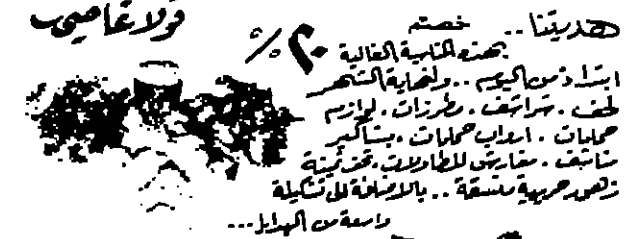 فولا غاصيب
هديتنا .. خصم
٢٠٪
بهذه المناسبة الغالية
ابتداءً من اليوم .. ولنهاية الشهر
لحف . شراشف . مطرزات . لوازم
حمامات . ابواب حمامات . بشاكير
مناشف . مفارش للطاولات .
زهور حريرية منسقة .. بالاضافة الى تشكيلة
واسعة من الهدايا ...